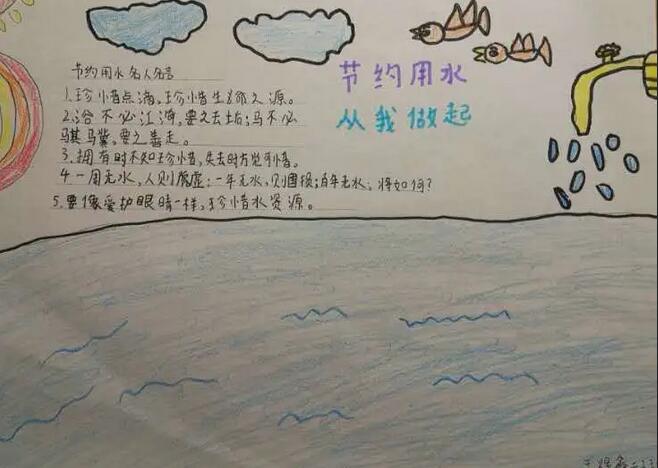 节约用水名人名言
1.珍惜点滴,珍惜生命之源。
2.浴不必江海,要之去垢;马不必
骐骥,要之善走。
3.拥有时不知珍惜,失去时方觉可惜。
4.一周无水,人则虚;一年无水,则国损;百年无水,将如何?
5.要像爱护眼睛一样,珍惜水资源。
节约用水
从我做起